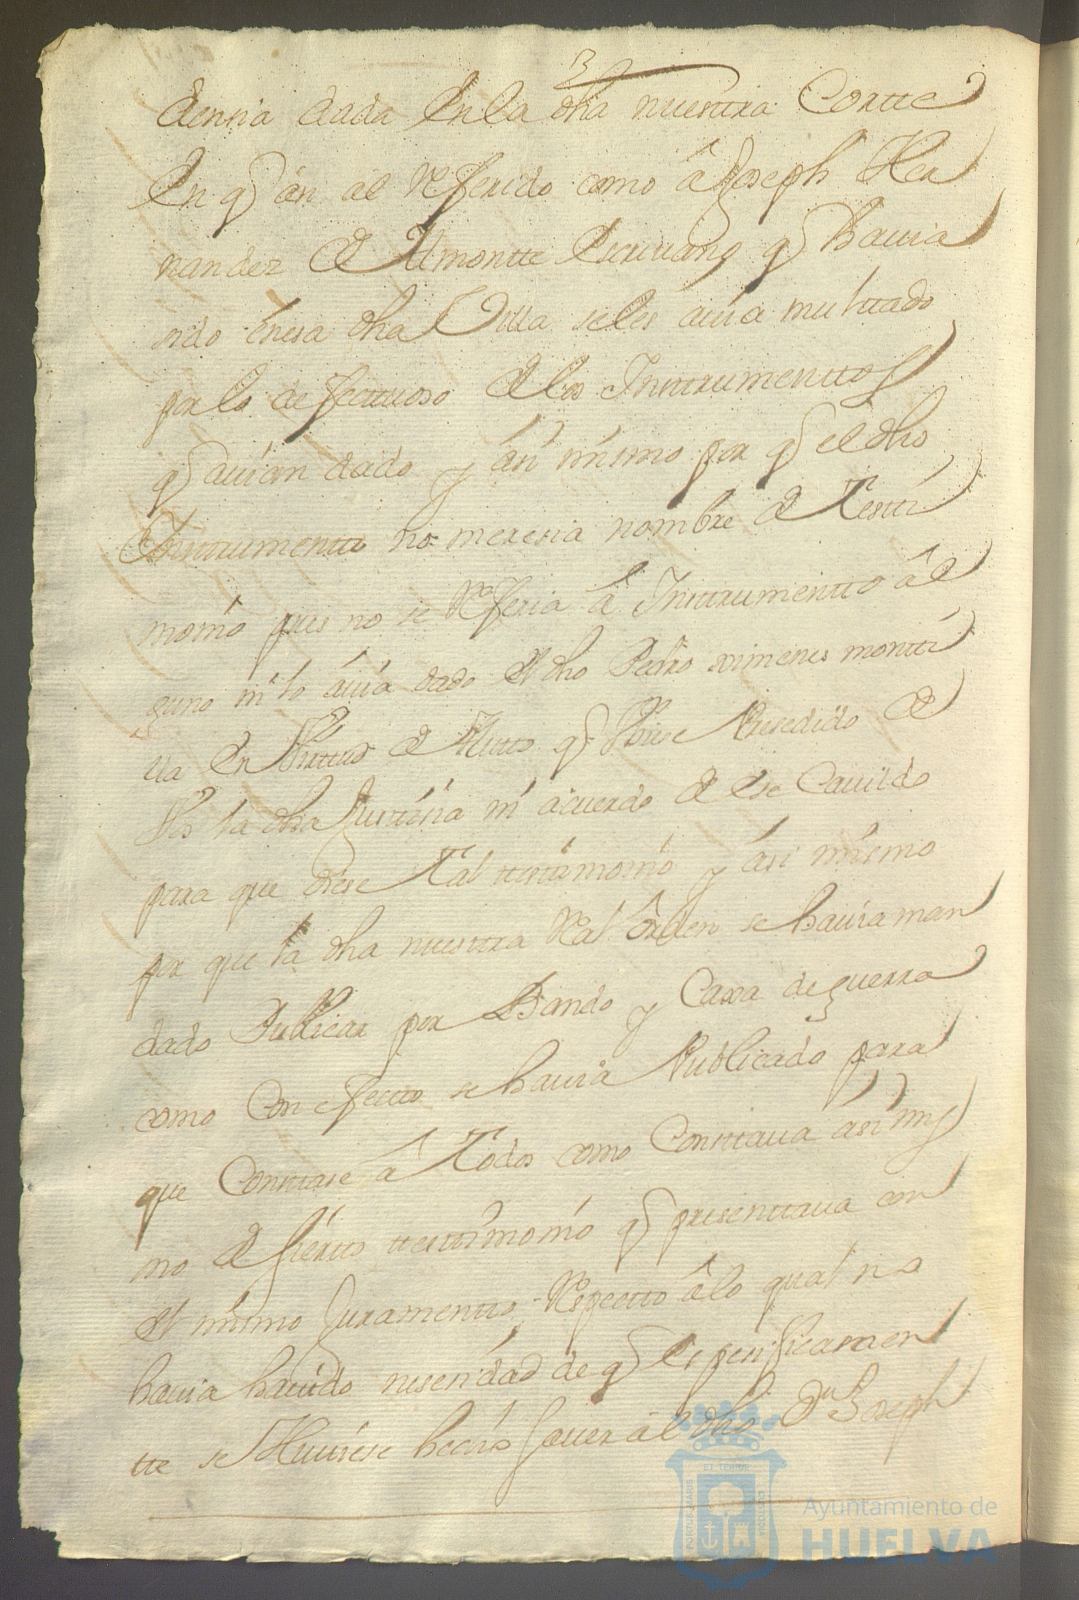 denzia dada En la dha nuestra Cortte
En q̃ asi al Referido como â Joseph Her
nandez de Almontte Escrivano q̃ havia
sido en esa dha Villa se les avia multado
por lo defectuoso de los Instrumenttos
q̃ avian dado y asi mismo por q̃ el dho
Instrumento no meresia nombre de Testi
monio pues no se Referia â Instrumentto âl
guno ni lo avia dado el dho Pedro ximenes montti
lla En Virttud de Autto q̃ Vbiese Presedido de
la dha Justicia ni acuerdo de ese Cavildo
para que diese Tal testimonio y asi mismo
por que la dha nuestra Real orden se havia man
dado Publicar por Bando y Caxa de guerra
como Con efecto se havia Publicado para
que Constase â Todos como Constava asi mis
mo de sierto testtimonio q̃ presenttava con
el mismo Juramentto, Respectto â lo qual no
havia havido nesesidad de q̃ Espesificamen
tte se Huviese hecho saver al dho Dn Joseph
Ayuntamiento de
HUELVA